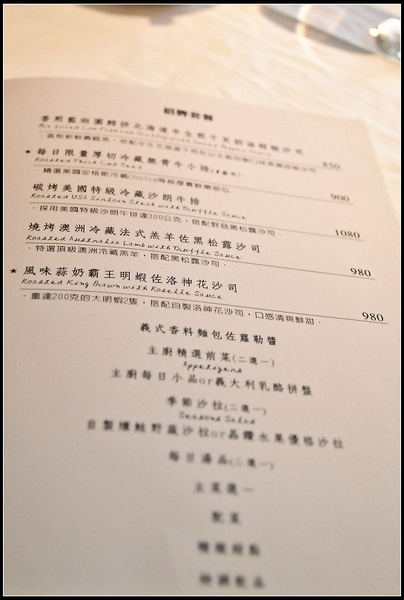 招牌套餐
850
★ 每日限量厚切冷藏無骨牛小排
Roasted Thick Cut Beef
900
碳烤美國特級冷藏沙朗牛排
Roasted USA Sirloin Steak with Truffle Sauce
．採用美國特級沙朗牛排達300公克，搭配野菇黑松露沙司． 1080
燒烤澳洲冷藏法式羔羊佐黑松露沙司
Roasted Australia Lamb with Truffle Sauce
．特選頂級澳洲冷藏羔羊，搭配黑松露沙司． 980
★ 風味蒜奶霸王明蝦佐洛神花沙司
Roasted King Prawn with Roselle Sauce
．重達200克的大明蝦2隻，搭配自製洛神花沙司，口感清爽鮮甜． 980
義式香料麵包佐蘿勒醬
主廚精選前菜(二選一)
Appetizers
主廚每日小品or義大利乳酪拼盤
季節沙拉(二選一)
Seasons Salad
自製燻鮭野蔬沙拉or晶鑽水果優格沙拉
每日湯品(二選一)
主菜選一
配菜
精緻甜點